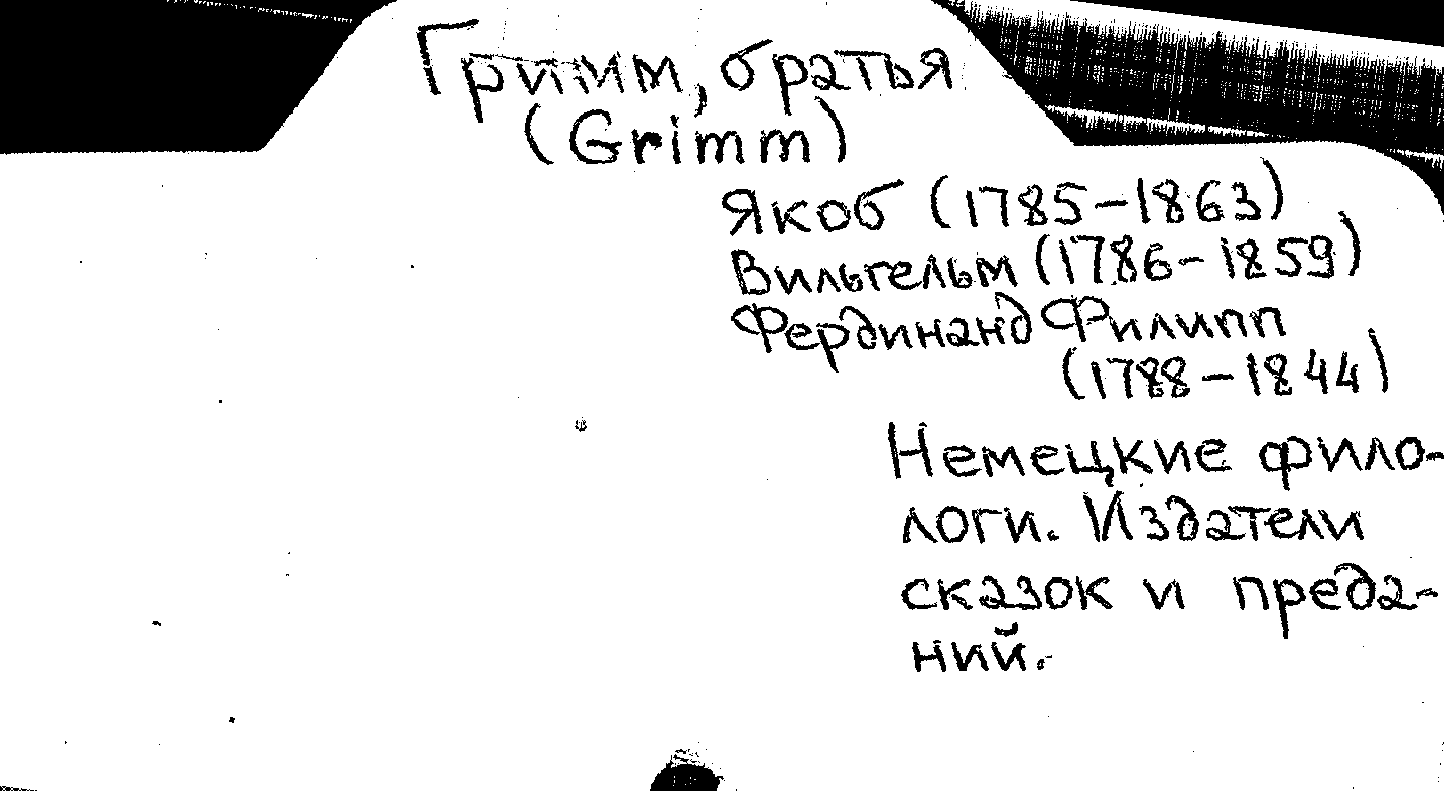 Гримм, братья
(Grimm)
Якоб (1785-1863)
Вильгельм (1786-1859)
Фердинанд Филипп
(1788-1844)
Немецкие фило-
логи. Издатели
сказок и преда-
ний.